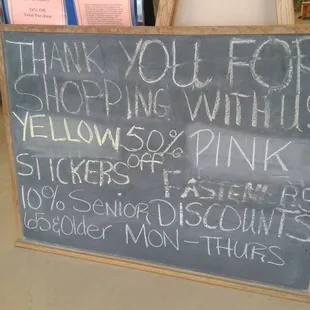 10% Off
THANK YOU FOR
SHOPPING WITH US
YELLOW 50% PINK
STICKERS off FASTENERS
10% SENIOR DISCOUNTS
65 & Older MON-THURS